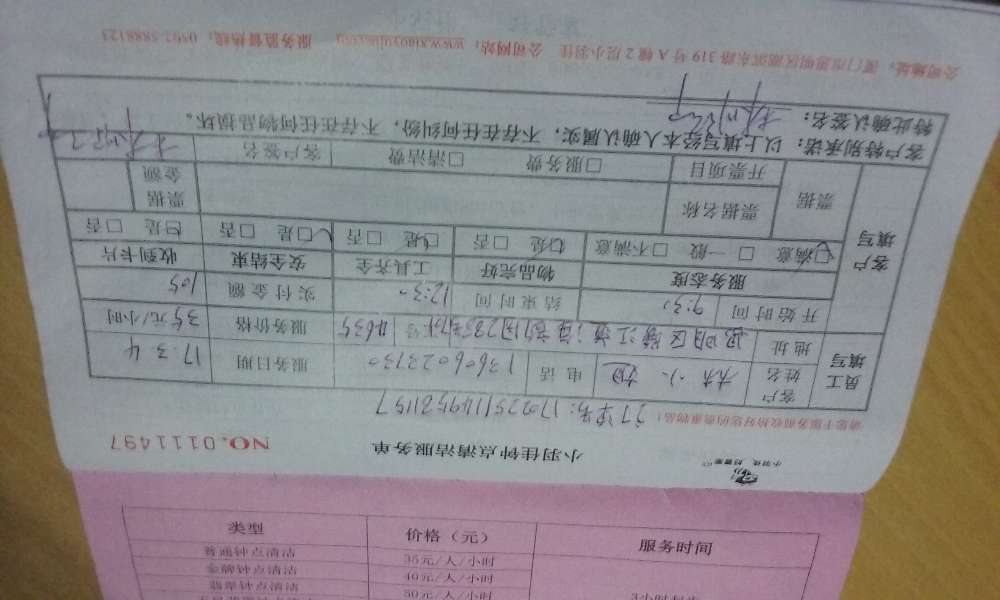 小羽佳钟点清洁服务单
NO.0111497
请您于服务前收拾好您的贵重物品!
员工填写
客户姓名 林小 电话 13606023730 服务日期 17.3.4
地址 服务价格 35元/小时
开始时间 9:30 结束时间 12:30 实付金额 105
客户填写
服务态度 物品完好 工具齐全 安全结束 收到卡片
□满意 □一般 □不满意 □是 □否 □是 □否 □是 □否 □是 □否
票据 票据名称 票据金额
开票项目 □服务费 □清洁费 客户签名
客户特别承诺：以上填写经本人确认属实，不存在任何纠纷，不存在任何物品损坏。
特此确认签名：
公司地址：厦门市思明区湖滨东路319号A幢2层小羽佳 公司网站：www.xiaoyujia.com 服务监督热线：0592-5888123
类型 价格（元） 服务时间
普通钟点清洁 35元/人/小时
金牌钟点清洁 40元/人/小时
翡翠钟点清洁 50元/人/小时
3小时起步